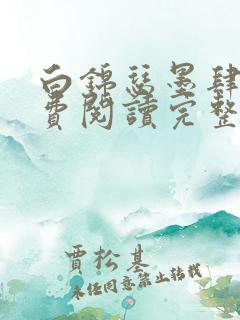 白錦瑟墨肆
費閱讀完整
賈松基
未經同意禁止轉載